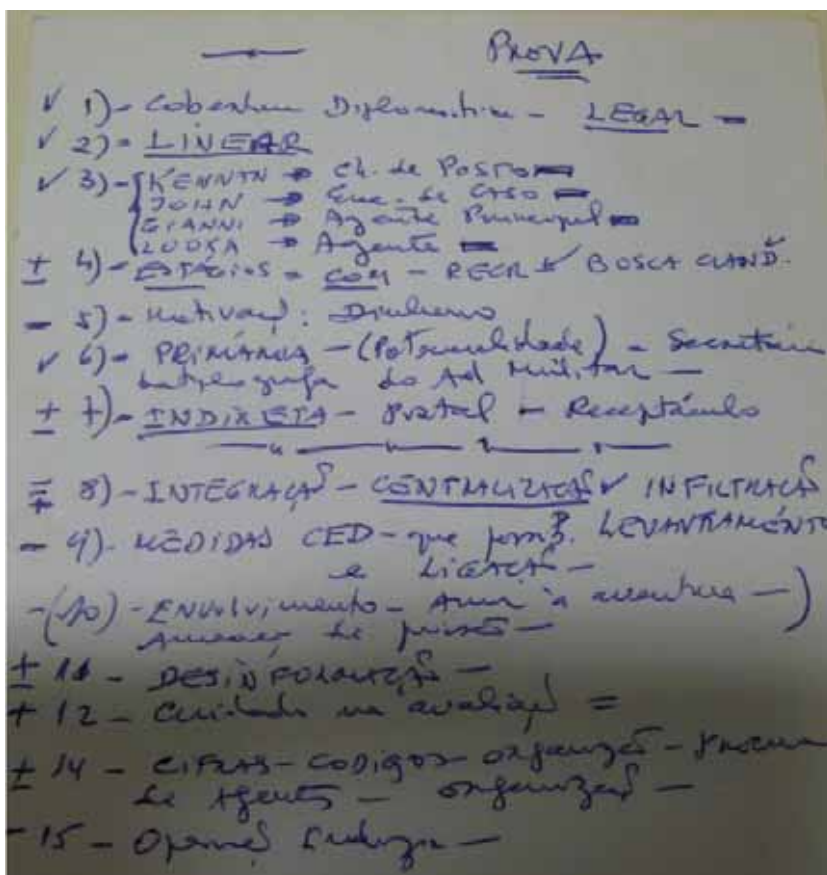 PROVA
✓ 1) - Cobertura Diplomatica - LEGAL -
✓ 2) - LINEAR
✓ 3) - KENNTN → Ch. de POSTO
JOHN → Enc. de CASO
GIANNI → Agente Principal
LODSA → Agente
± 4) - ESTÁGIOS = COM - RECR ✓ BOSCA CLAND.
- 5) - Motivaç: Dinheiro
✓ 6) - PRIMÁRIA - (Potencialidade) - Secretária
do Ad Militar -
± 7) - INDIRETA - Postal - Receptáculo
8) - INTEGRAÇÃO - CENTRALIZAÇÃO ✓ INFILTRAÇÃO
- 9) - MEDIDAS CED - que LEVANTAMENTO
e LIGAÇÃO -
- (10) - ENVOLVIMENTO - Amor à aventura - )
Ameaça de prisão -
± 11 - DESINFORMAÇÃO -
+ 12 - Cuidado na avaliação =
± 14 - CIFRAS - CODIGOS - organização - procura
de Agents - organização -
- 15 - Operaç